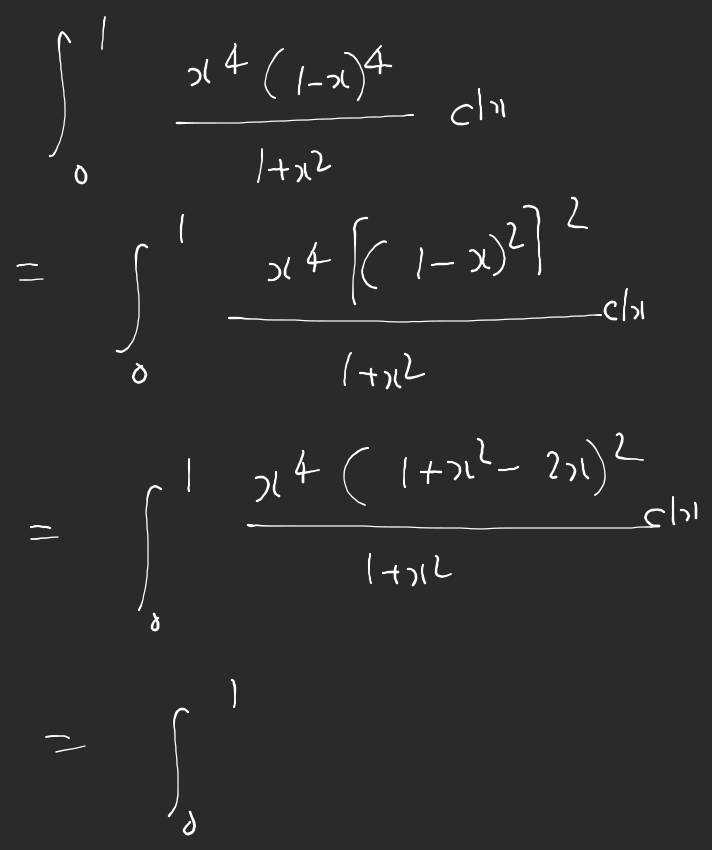 ∫₀¹ x⁴(1-x)⁴ / 1+x² dx
= ∫₀¹ x⁴[(1-x)²]² / 1+x² dx
= ∫₀¹ x⁴(1+x²-2x)² / 1+x² dx
= ∫₀¹